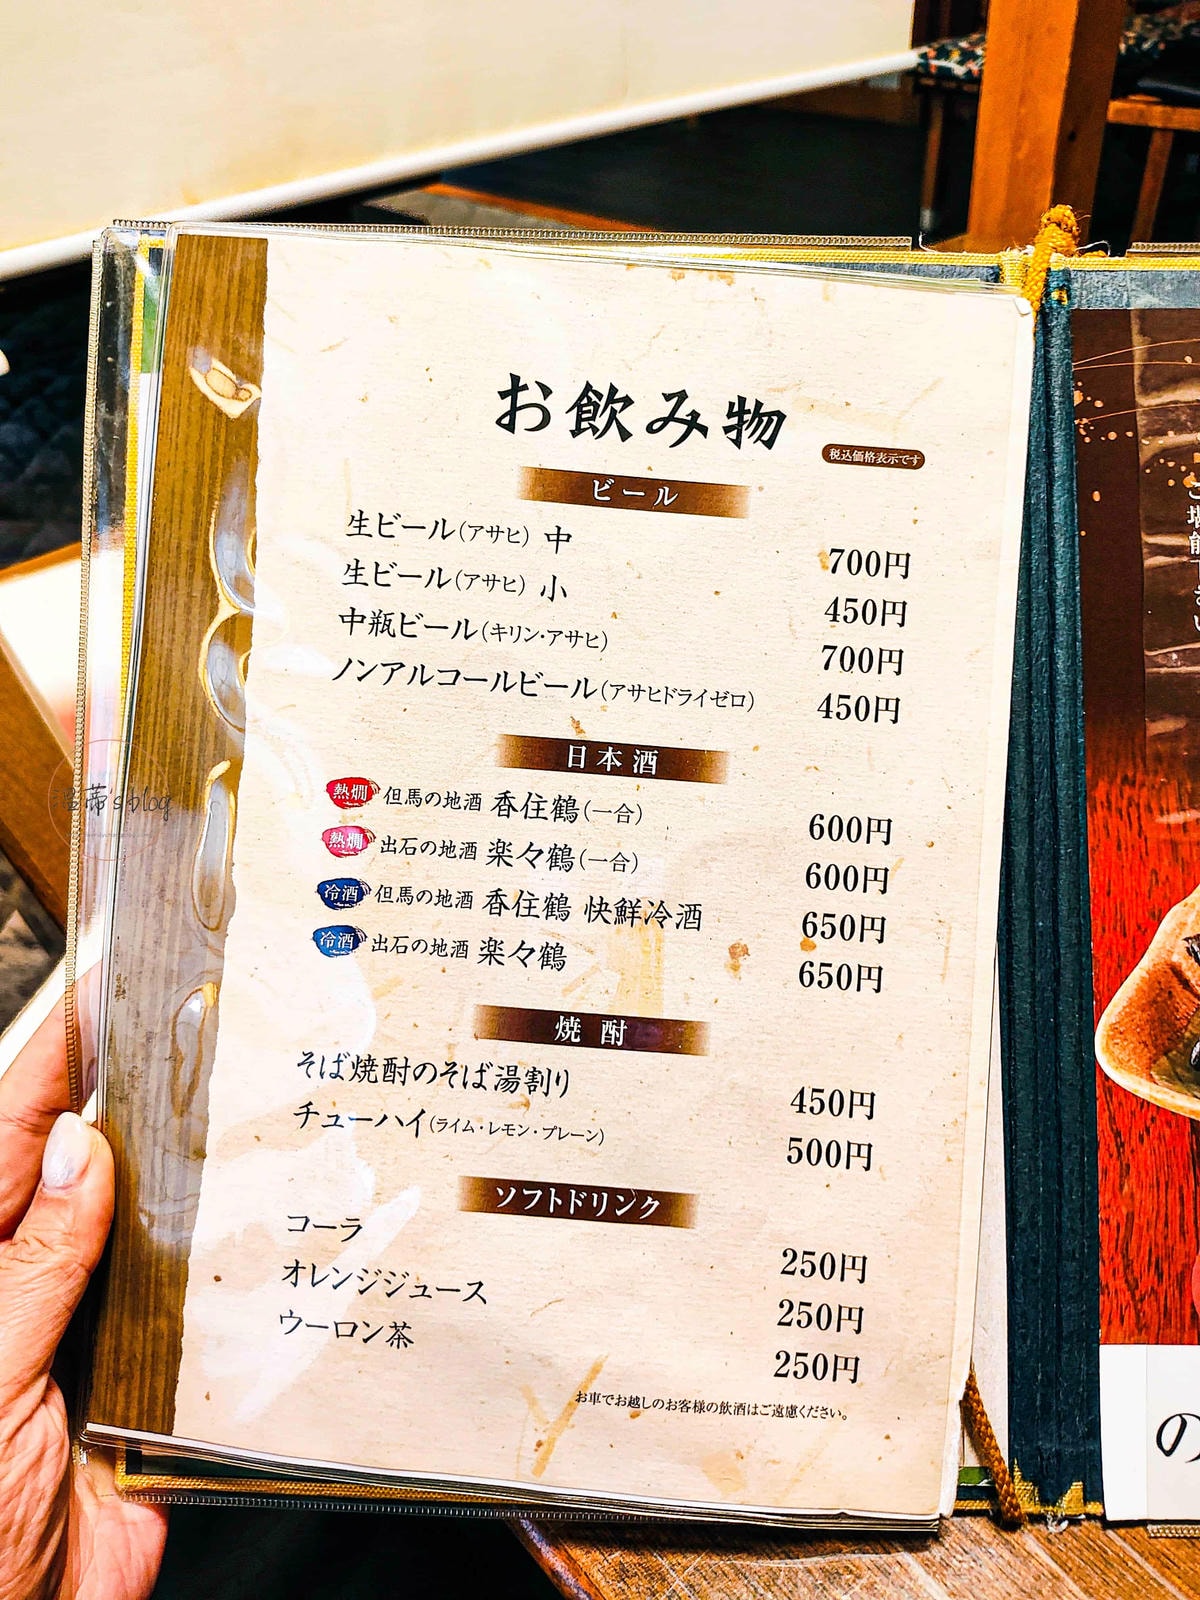 お飲み物
税込価格表示です
ビール
生ビール(アサヒ) 中 700円
生ビール(アサヒ) 小 450円
中瓶ビール(キリン・アサヒ) 700円
ノンアルコールビール(アサヒドライゼロ) 450円
日本酒
熱燗 但馬の地酒 香住鶴(一合) 600円
熱燗 出石の地酒 楽々鶴(一合) 600円
冷酒 但馬の地酒 香住鶴 快鮮冷酒 650円
冷酒 出石の地酒 楽々鶴 650円
焼酎
そば焼酎のそば湯割り 450円
チューハイ(ライム・レモン・プレーン) 500円
ソフトドリンク
コーラ 250円
オレンジジュース 250円
ウーロン茶 250円
お車でお越しのお客様の飲酒はご遠慮ください。
の
温蒂's blog